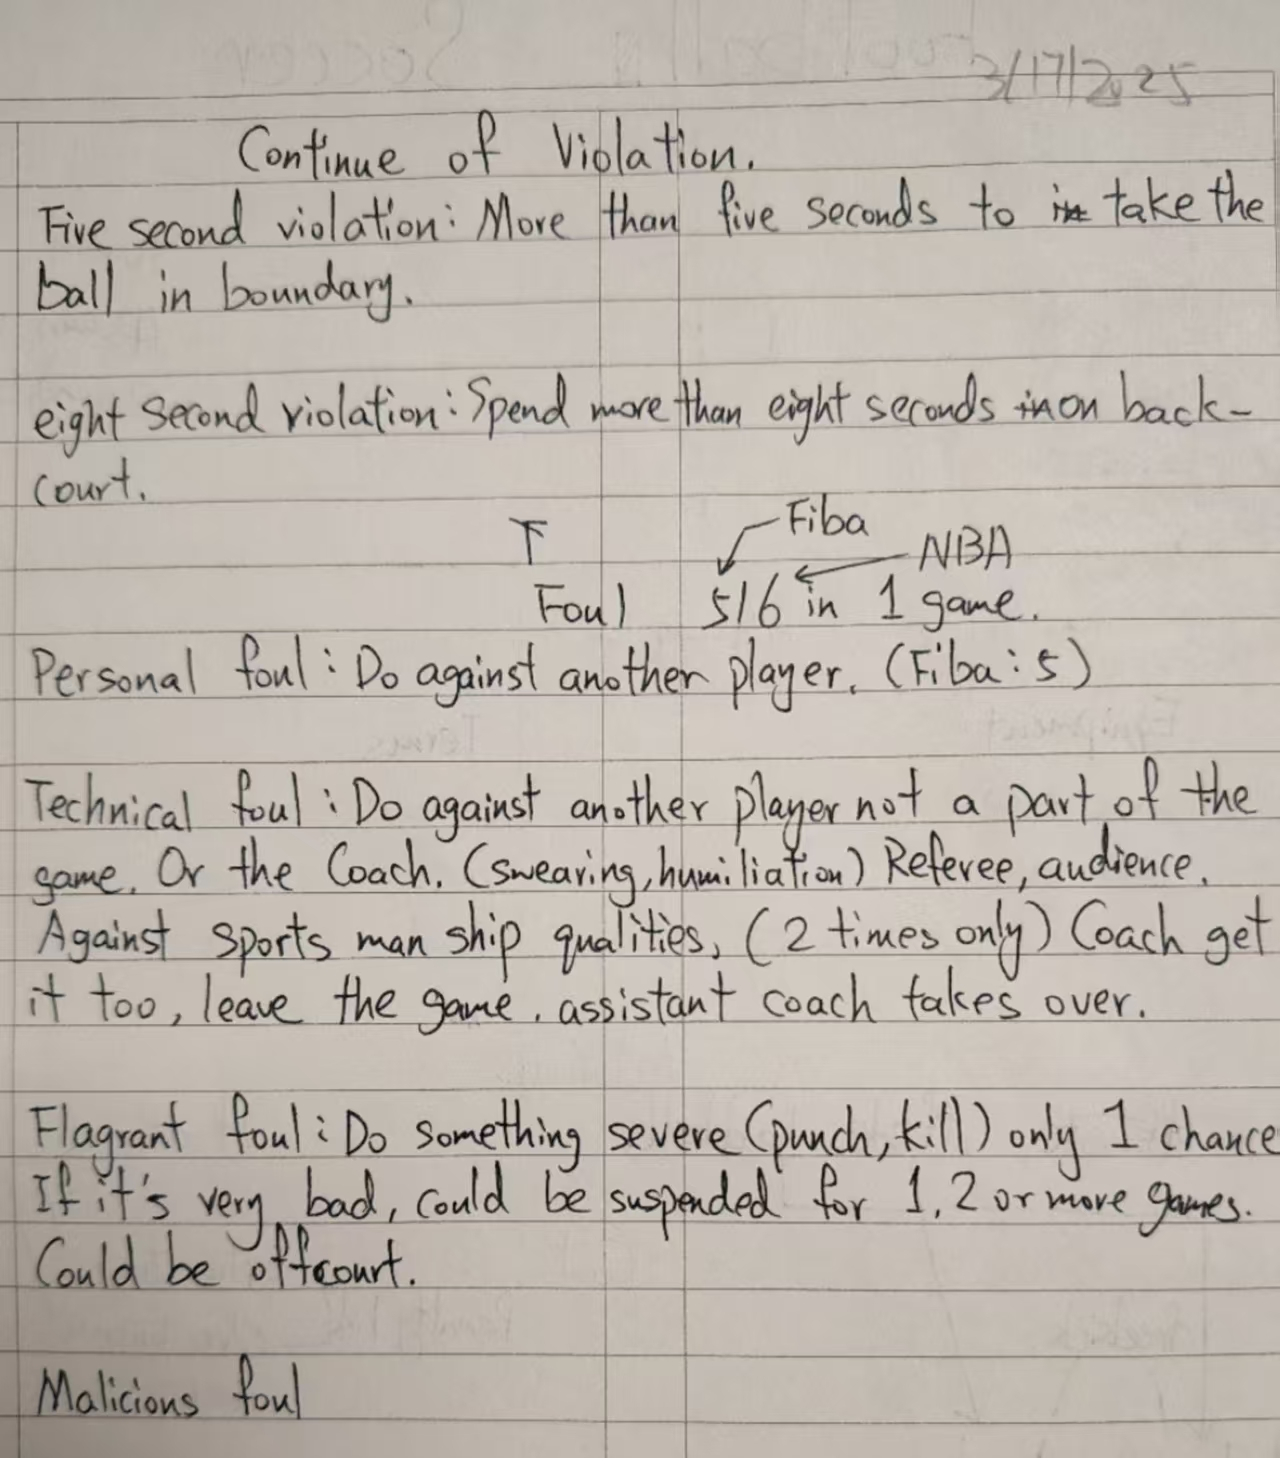 3/17/2025
Continue of Violation.
Five second violation: More than five seconds to take the
ball in boundary.
eight second violation: Spend more than eight seconds on back-
court.
Fiba
F
NBA
Foul 5/6 in 1 game.
Personal foul: Do against another player. (Fiba: 5)
Technical foul: Do against another player not a part of the
game. Or the Coach. (swearing, humiliation) Referee, audience.
Against sports man ship qualities, (2 times only) Coach get
it too, leave the game. assistant coach takes over.
Flagrant foul: Do something severe (punch, kill) only 1 chance
If it's very bad, could be suspended for 1, 2 or more games.
Could be offcourt.
Malicious foul